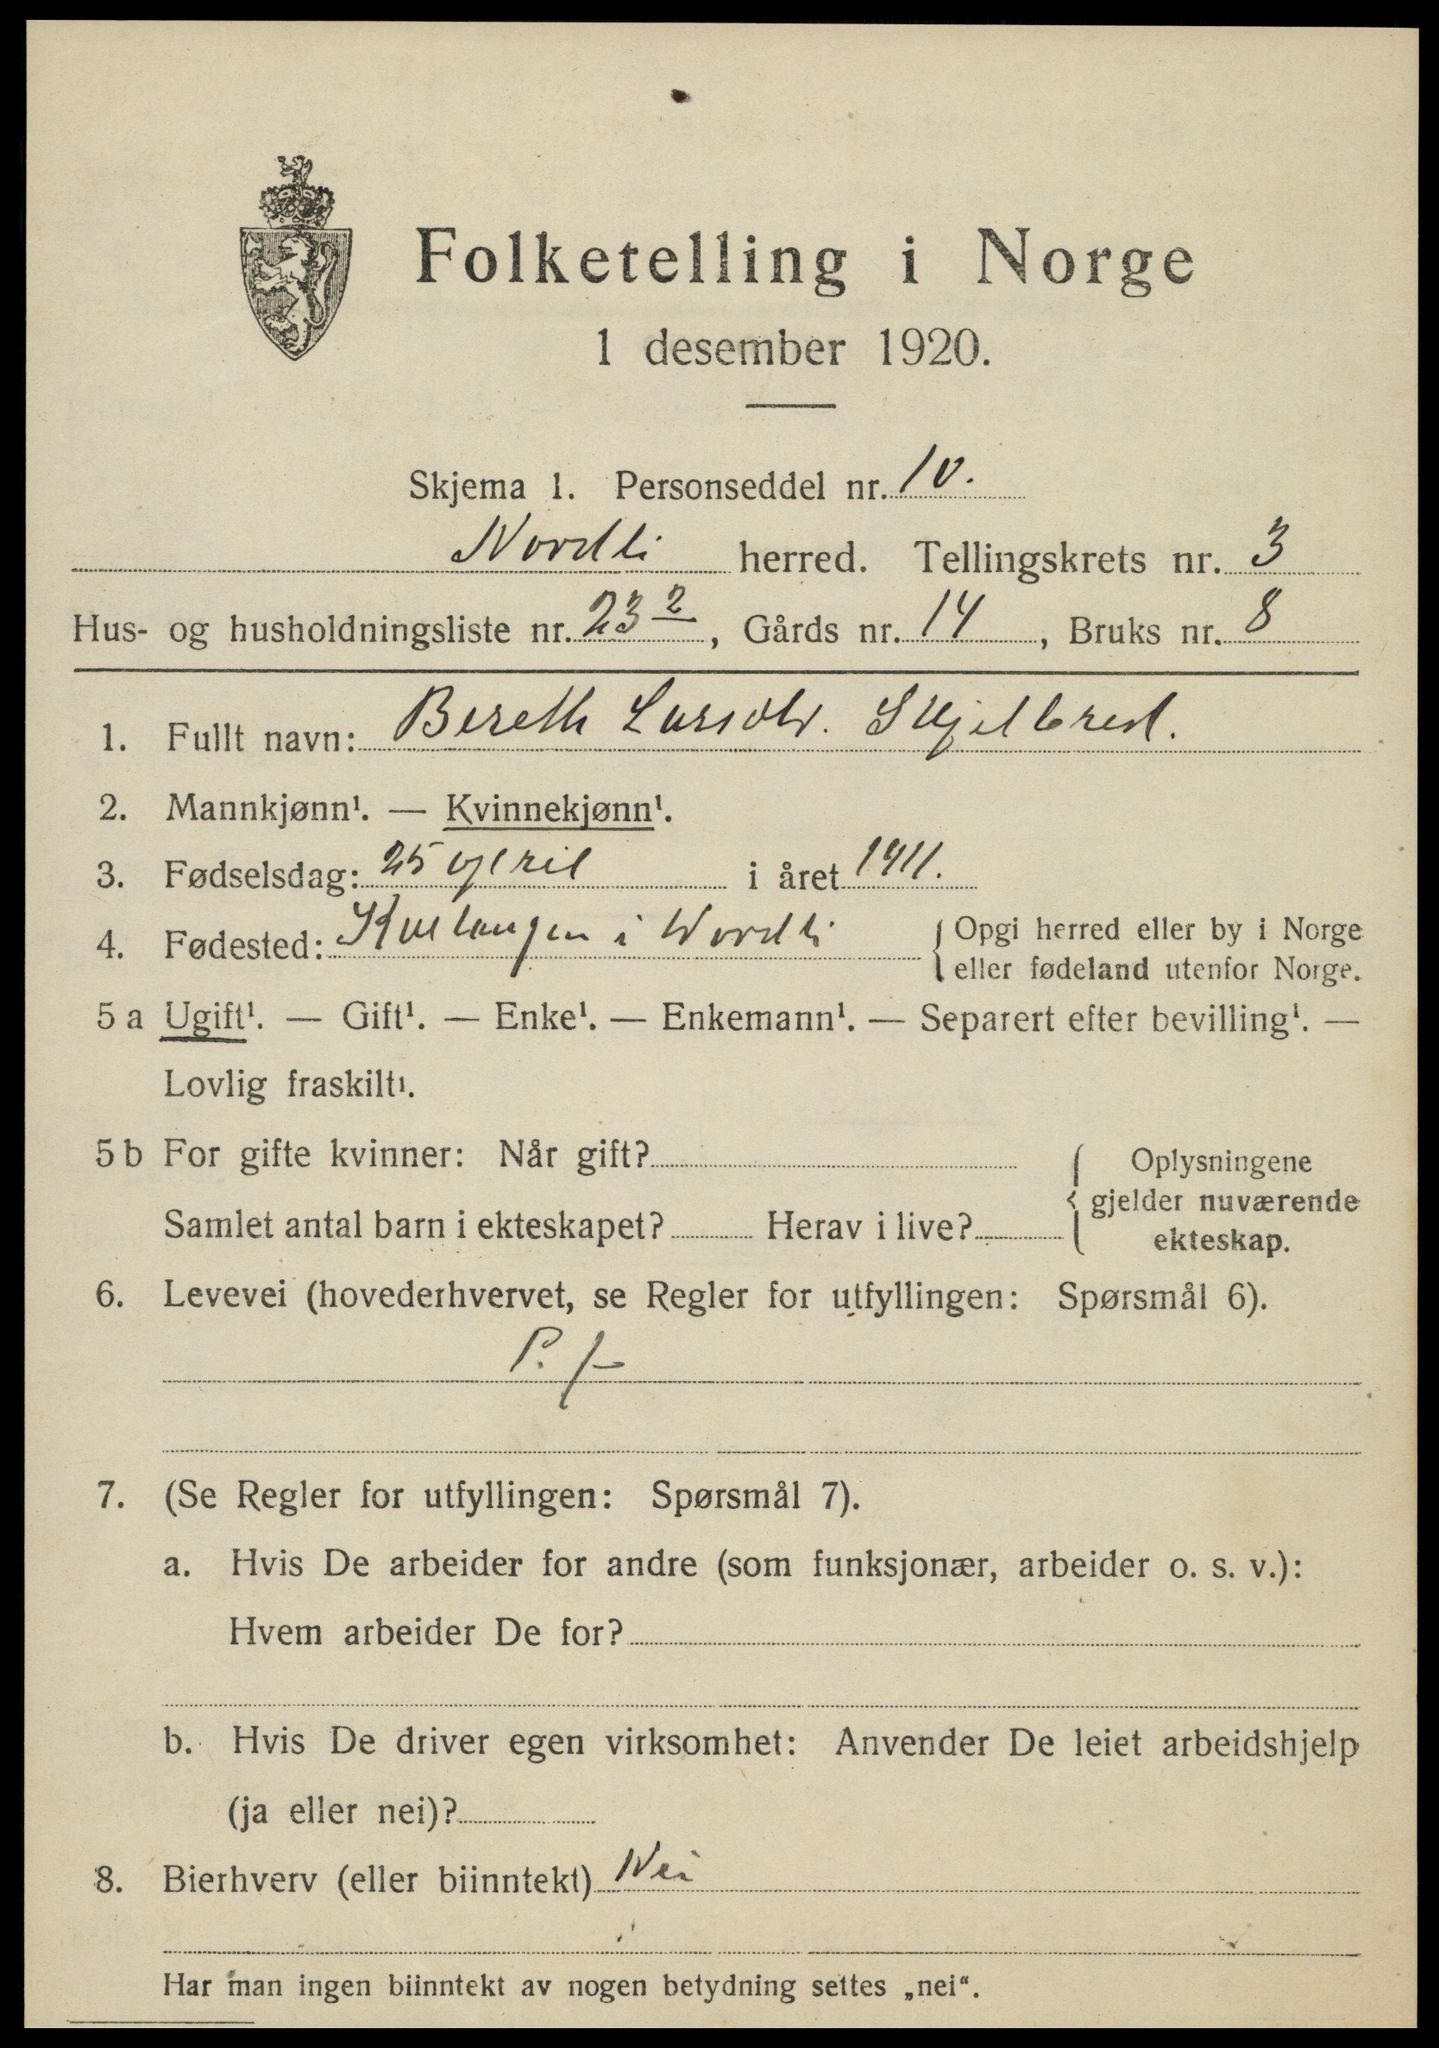 Folketelling i Norge
1 desember 1920.
Skjema 1. Personseddel nr. 10.
Nordli herred. Tellingskrets nr. 3
Hus- og husholdningsliste nr. 23 2, Gårds nr. 14, Bruks nr. 8
1. Fullt navn: Bereth Larsdtr. Skjelbred.
2. Mannkjønn¹. — Kvinnekjønn¹.
3. Fødselsdag: 25 april i året 1911.
4. Fødested: Kvelangen i Nordli {Opgi herred eller by i Norge
eller fødeland utenfor Norge.
5 a Ugift¹. — Gift¹. — Enke¹. — Enkemann¹. — Separert efter bevilling¹. —
Lovlig fraskilt¹.
5 b For gifte kvinner: Når gift? Oplysningene
gjelder nuværende
Samlet antal barn i ekteskapet? Herav i live?
ekteskap.
6. Levevei (hovederhvervet, se Regler for utfyllingen: Spørsmål 6).
P. f
7. (Se Regler for utfyllingen: Spørsmål 7).
a. Hvis De arbeider for andre (som funksjonær, arbeider o. s. v.):
Hvem arbeider De for?
b. Hvis De driver egen virksomhet: Anvender De leiet arbeidshjelp
(ja eller nei)?
8. Bierhverv (eller biinntekt) Nei
Har man ingen biinntekt av nogen betydning settes „nei“.